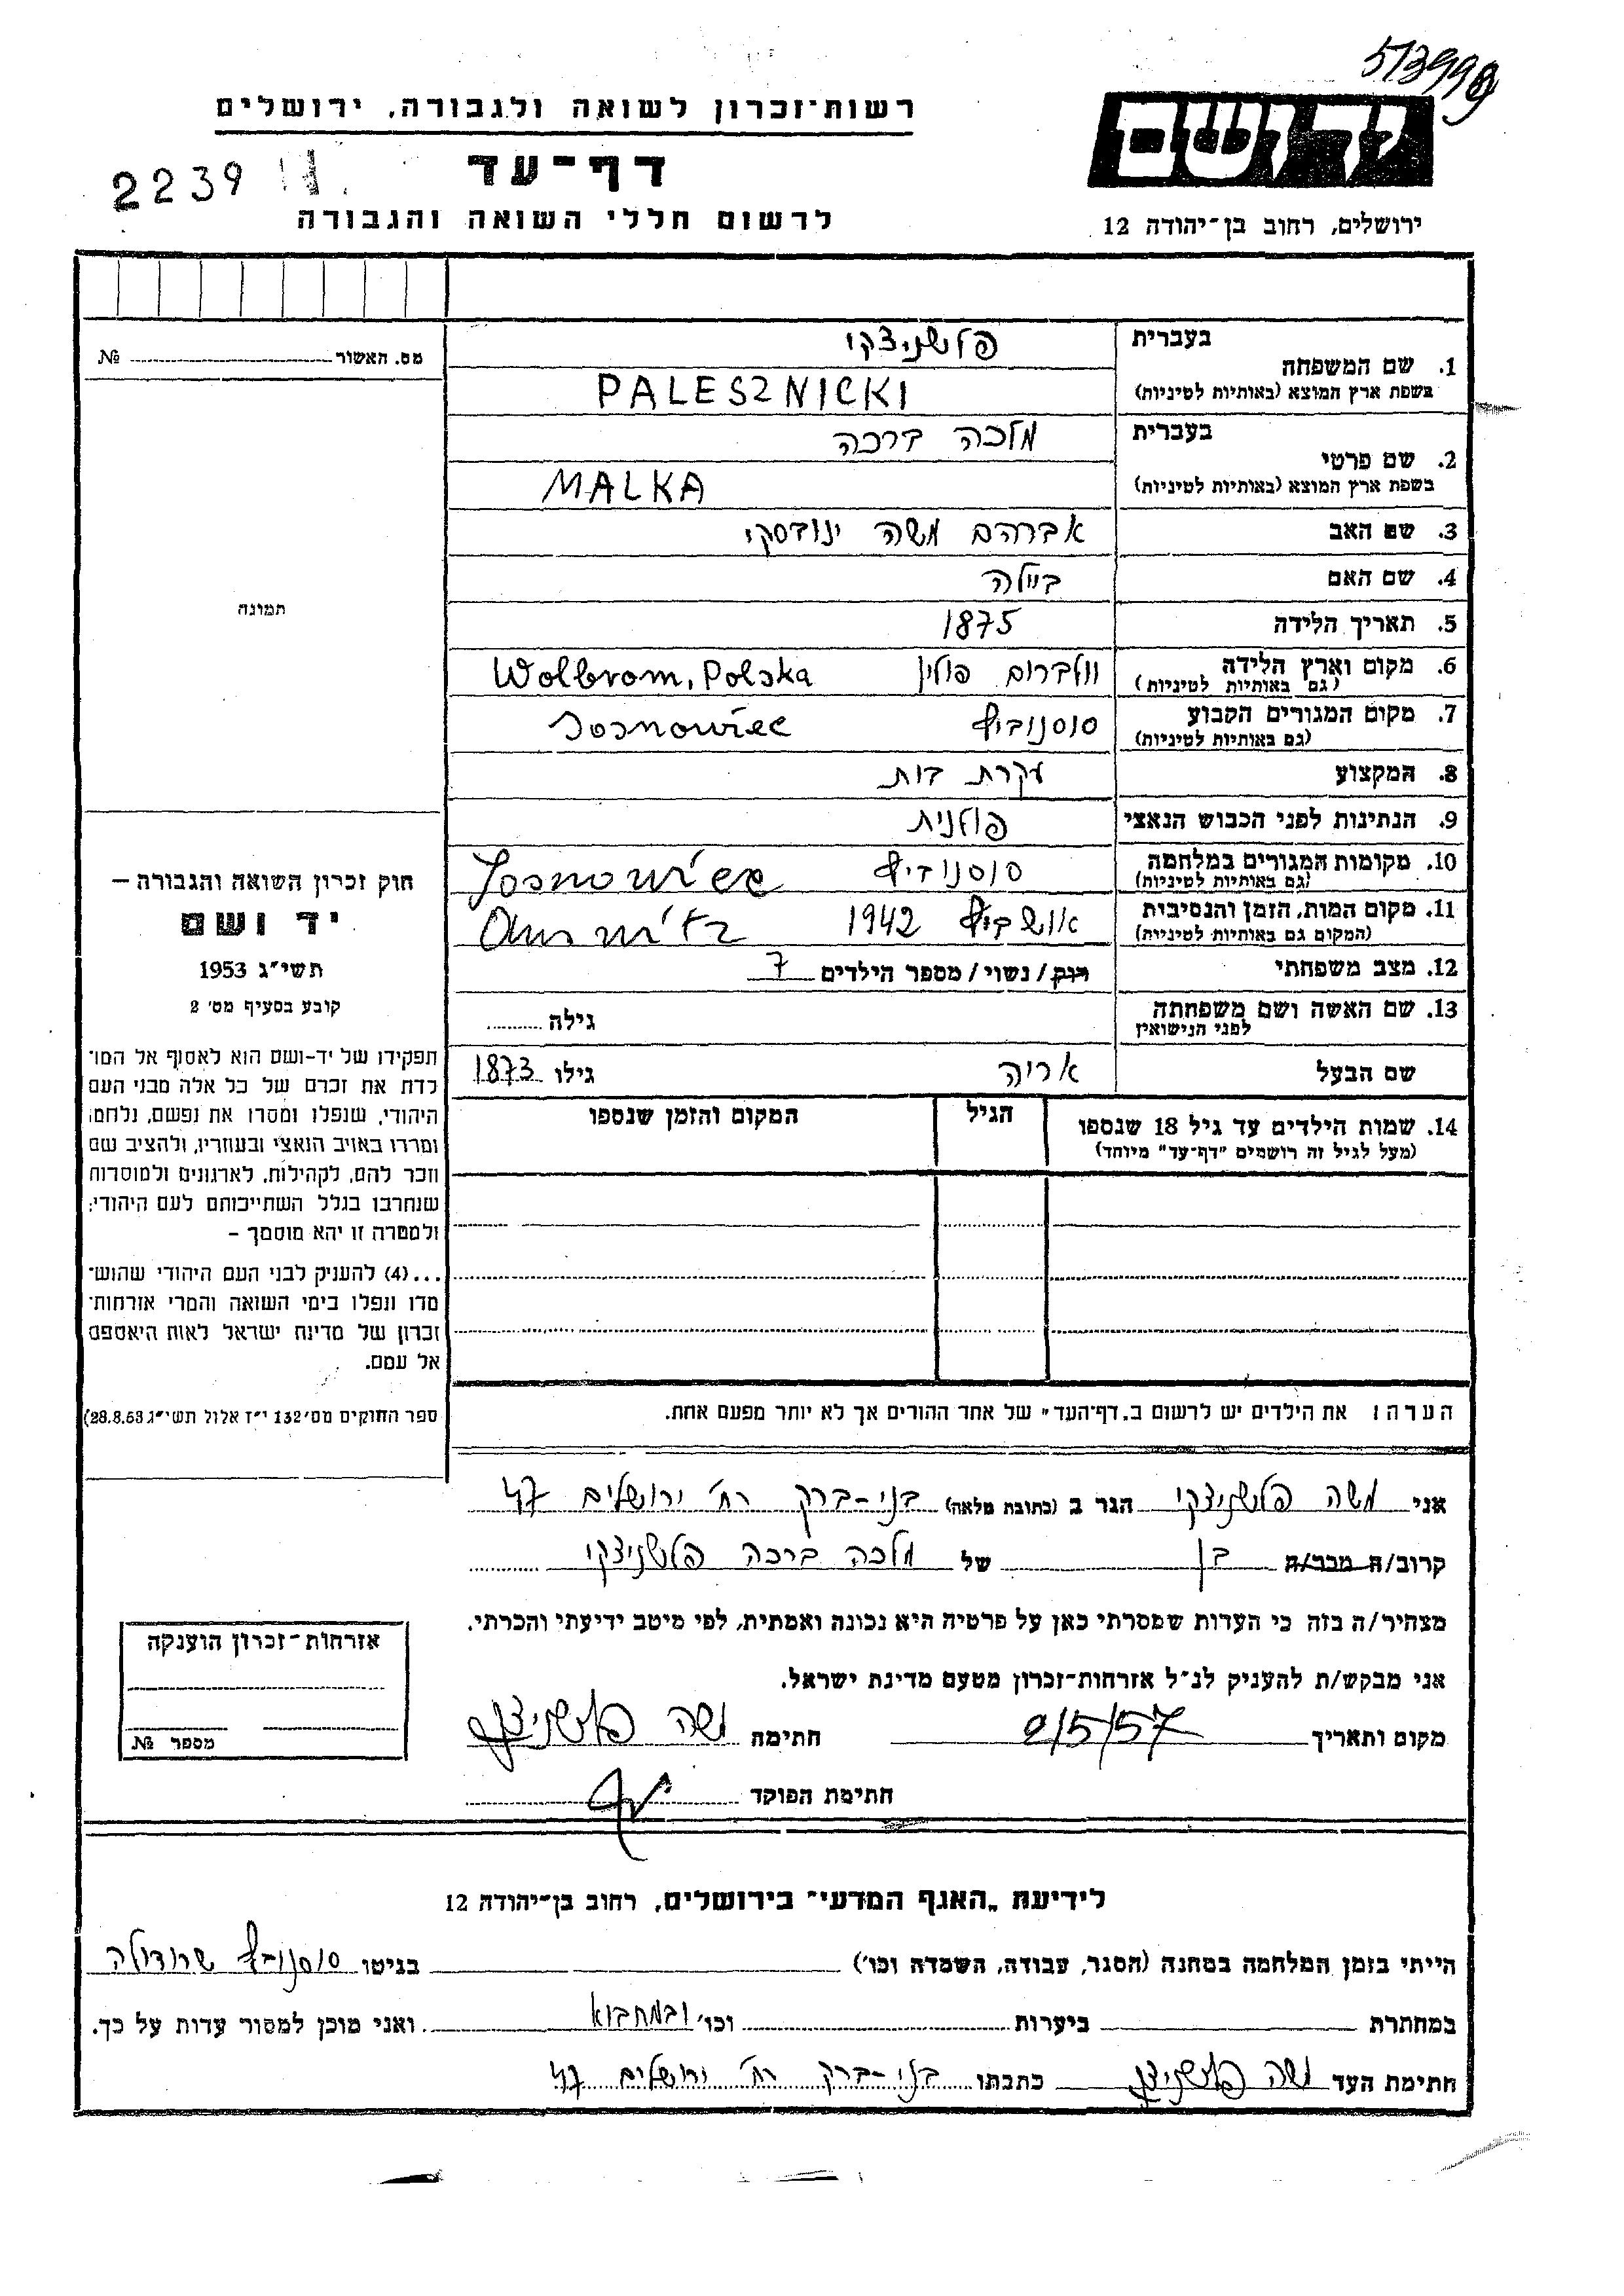 513998
רשות-זכרון לשואה ולגבורה, ירושלים
יד ושם
דף-עד
2239
לרשום חללי השואה והגבורה
ירושלים, רחוב בן-יהודה 12
מס. האשור № 
תמונה
חוק זכרון השואה והגבורה –
יד ושם
תשי"ג 1953
קובע בסעיף מס' 2
תפקידו של יד-ושם הוא לאסוף אל המו־
לדת את זכרם של כל אלה מבני העם
היהודי, שנפלו ומסרו את נפשם, נלחמו
ומרדו באויב הנאצי ובעוזריו, ולהציב שם
וזכר להם, לקהילות, לארגונים ולמוסדות
שנחרבו בגלל השתייכותם לעם היהודי;
ולמטרה זו יהא מוסמך –
...(4) להעניק לבני העם היהודי שהוש־
מדו ונפלו בימי השואה והמרי אזרחות־
זכרון של מדינת ישראל לאות היאספם
אל עמם.
ספר החוקים מס' 132 י"ז אלול תשי"ג 28.8.53)
בעברית פלשניצקי
1. שם המשפחה
בשפת ארץ המוצא (באותיות לטיניות) PALESZNICKI
בעברית מלכה ברכה
2. שם פרטי
בשפת ארץ המוצא (באותיות לטיניות) MALKA
3. שם האב אברהם משה
4. שם האם ביילה
5. תאריך הלידה 1875
6. מקום וארץ הלידה וולברום פולין Wolbrom, Polska
(גם באותיות לטיניות)
7. מקום המגורים הקבוע סוסנוביץ Sosnowiec
(גם באותיות לטיניות)
8. המקצוע עקרת בית
9. הנתינות לפני הכבוש הנאצי פולנית
10. מקומות המגורים במלחמה סוסנוביץ Sosnowiec
(גם באותיות לטיניות)
11. מקום המות, הזמן והנסיבות אושביץ 1942
(המקום גם באותיות לטיניות)
12. מצב משפחתי רווק/נשוי/מספר הילדים 7
13. שם האשה ושם משפחתה גילה
לפני הנישואין
שם הבעל אריה גילו 1873
14. שמות הילדים עד גיל 18 שנספו הגיל המקום והזמן שנספו
(מעל לגיל זה רושמים "דף-עד" מיוחד)
הערה: את הילדים יש לרשום ב"דף-העד" של אחד ההורים אך לא יותר מפעם אחת.
אני משה פלשניצקי הגר ב (כתובת מלאה) בני-ברק רח' ירושלים 47
קרוב/ה מכר/ה בן של מלכה ברכה פלשניצקי
מצהיר/ה בזה כי העדות שמסרתי כאן על פרטיה היא נכונה ואמתית, לפי מיטב ידיעתי והכרתי.
אני מבקש/ת להעניק לנ"ל אזרחות-זכרון מטעם מדינת ישראל.
מקום ותאריך 2/5/57 חתימה משה פלשניצקי
חתימת הפוקד
אזרחות-זכרון הוענקה
מספר №
לידיעת "האגף המדעי" בירושלים, רחוב בן-יהודה 12
הייתי בזמן המלחמה במחנה (הסגר, עבודה, השמדה וכו') בגיטו סוסנוביץ שרודולה
במחתרת ביערות וכו' ובמחבוא ואני מוכן למסור עדות על כך.
חתימת העד משה פלשניצקי כתבתו בני-ברק רח' ירושלים 47